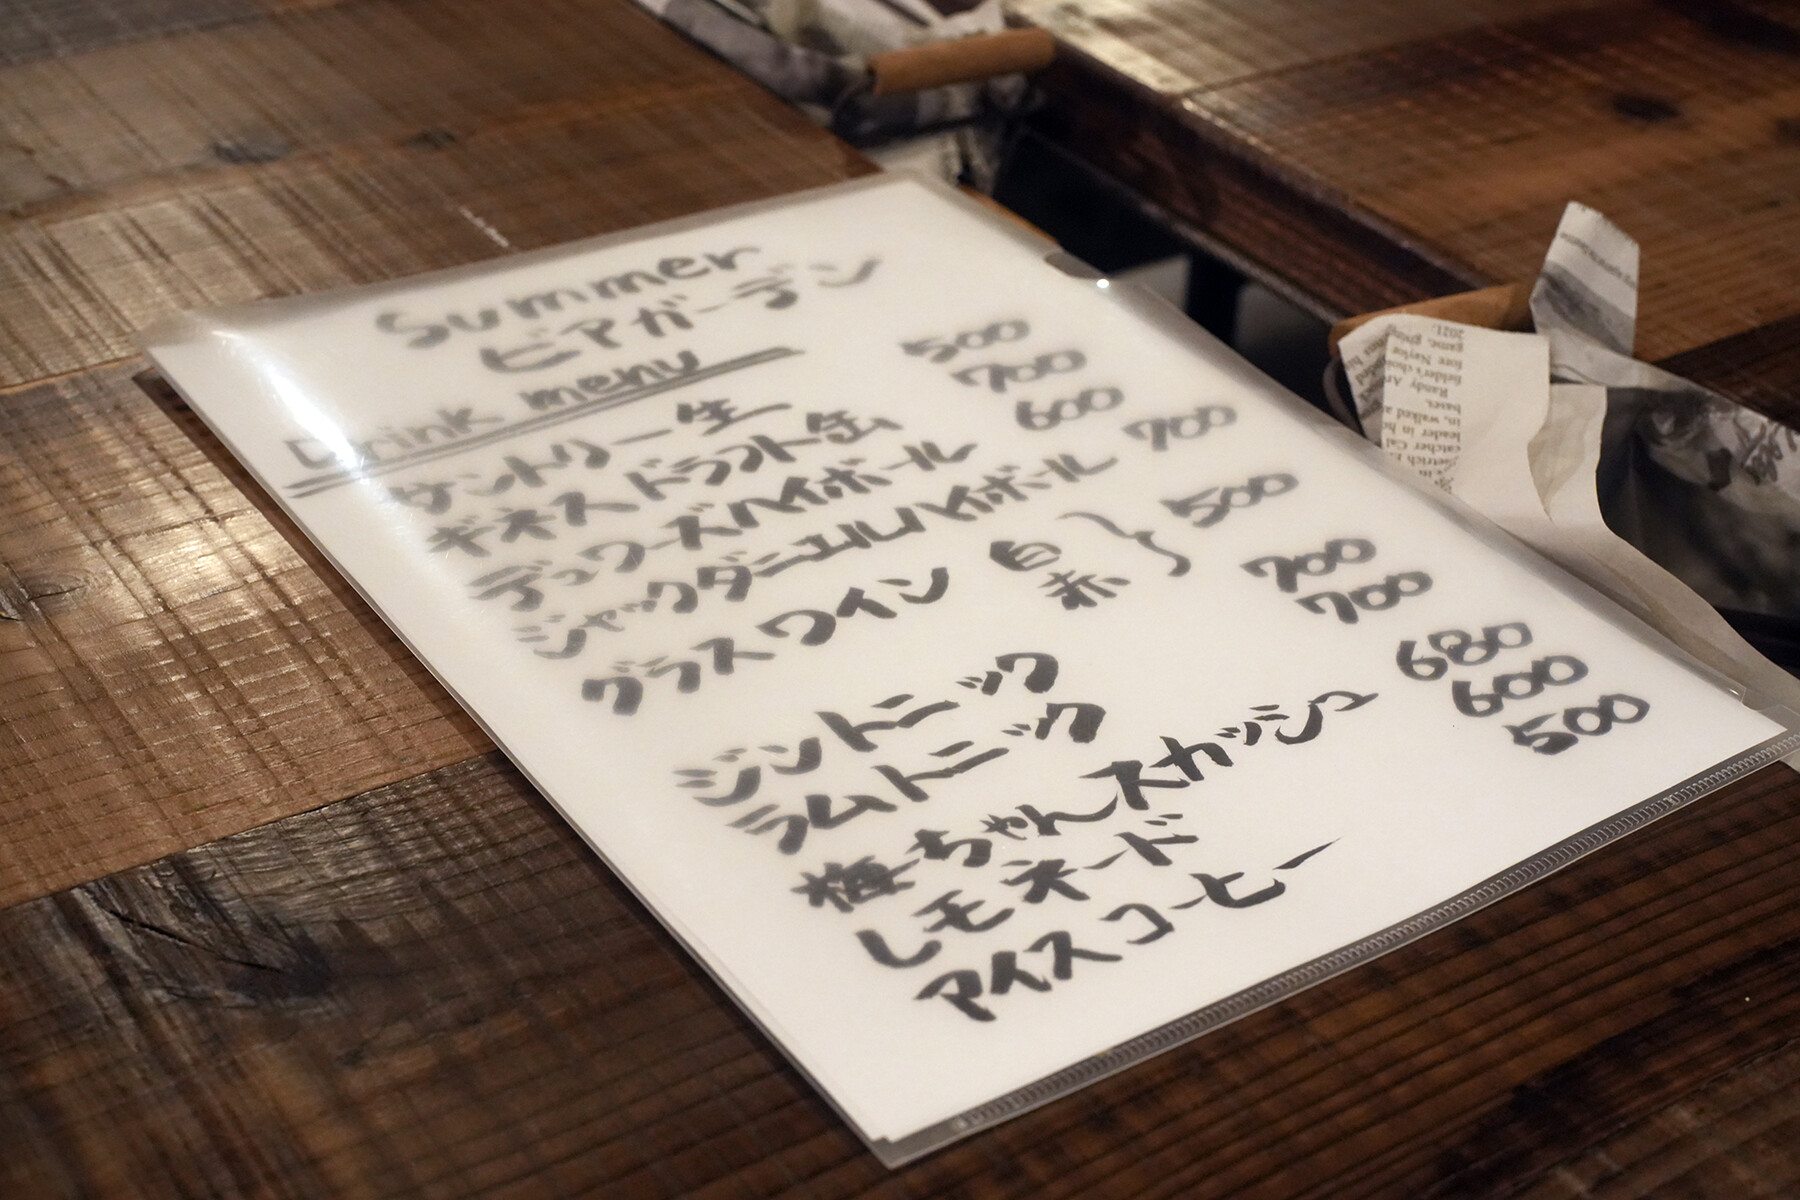 Summer
ビアガーデン
Drink menu
サントリー生 500
ギネスドラフト缶 700
デュワーズハイボール 600
ジャックダニエルハイボール 700
グラスワイン 白 赤 } 500
ジントニック 700
ラムトニック 700
梅ちゃんスカッシュ 680
レモネード 600
アイスコーヒー 500
2021.
game, going
fore Naylor
fielder's choi
Randy Ar
bases.
in, walked a
leader in h
catcher Cal